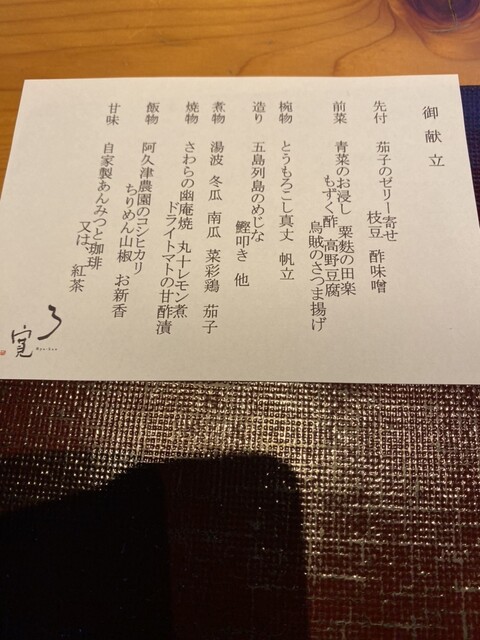 御献立
先付　茄子のゼリー寄せ
枝豆　酢味噌
前菜　青菜のお浸し　粟麩の田楽
もずく酢　高野豆腐
烏賊のさつま揚げ
椀物　とうもろこし真丈　帆立
造り　五島列島のめじな
鰹叩き　他
煮物　湯波　冬瓜　南瓜　菜彩鶏　茄子
焼物　さわらの幽庵焼　丸十レモン煮
ドライトマトの甘酢漬
飯物　阿久津農園のコシヒカリ
ちりめん山椒　お新香
甘味　自家製あんみつと珈琲
又は、紅茶
了寛
Ryo-kan